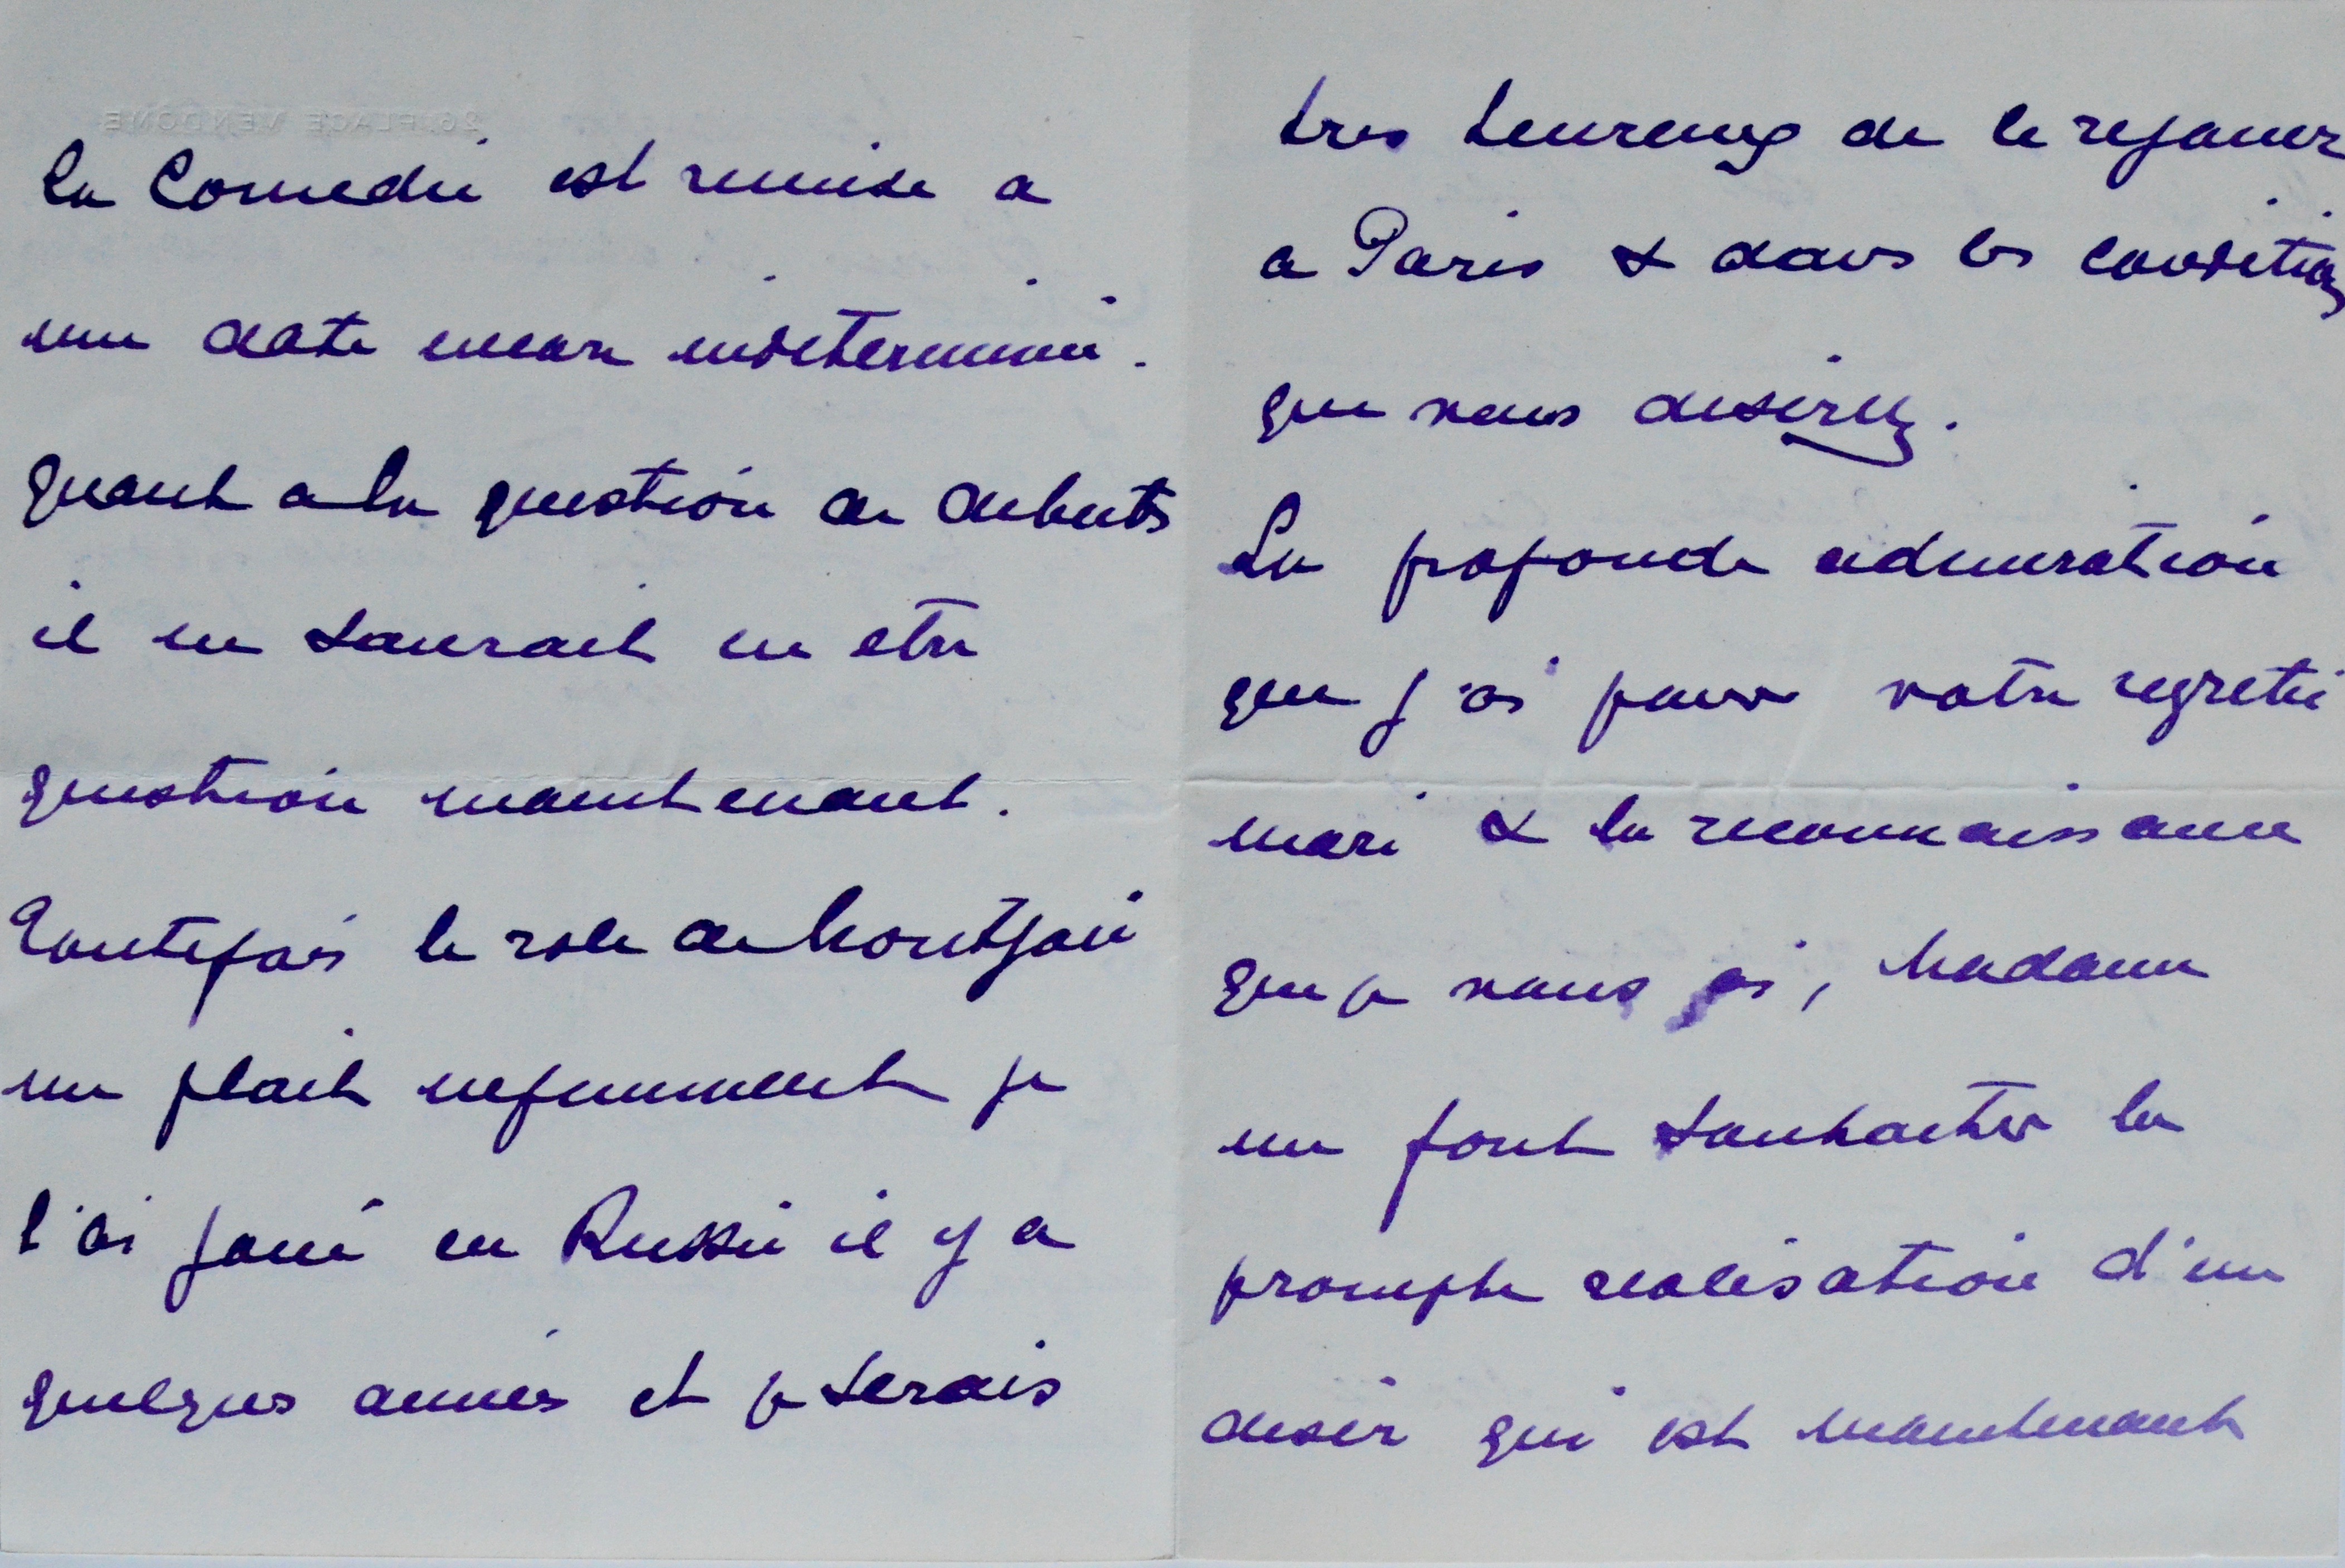 26, PLACE VENDÔME
la Comedie est remise a
une date encore indeterminée.
Quant a la question de debuts
il ne saurait en etre
question maintenant.
Toutefois le role de Montjoie
me plait infiniment je
l'ai joué en Russie il y a
quelques années et je serais
tres heureux de le rejouer
a Paris & dans les conditions
que vous desirez.
La profonde admiration
que j'ai pour votre regretté
mari & la reconnaissance
que je vous ai, Madame
me font souhaiter la
prompte realisation d'un
desir qui est maintenant